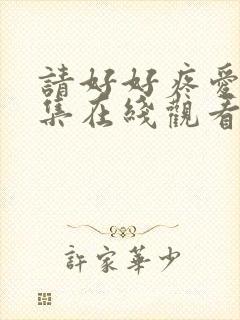 請好好疼愛
集在綫觀看
許家華少